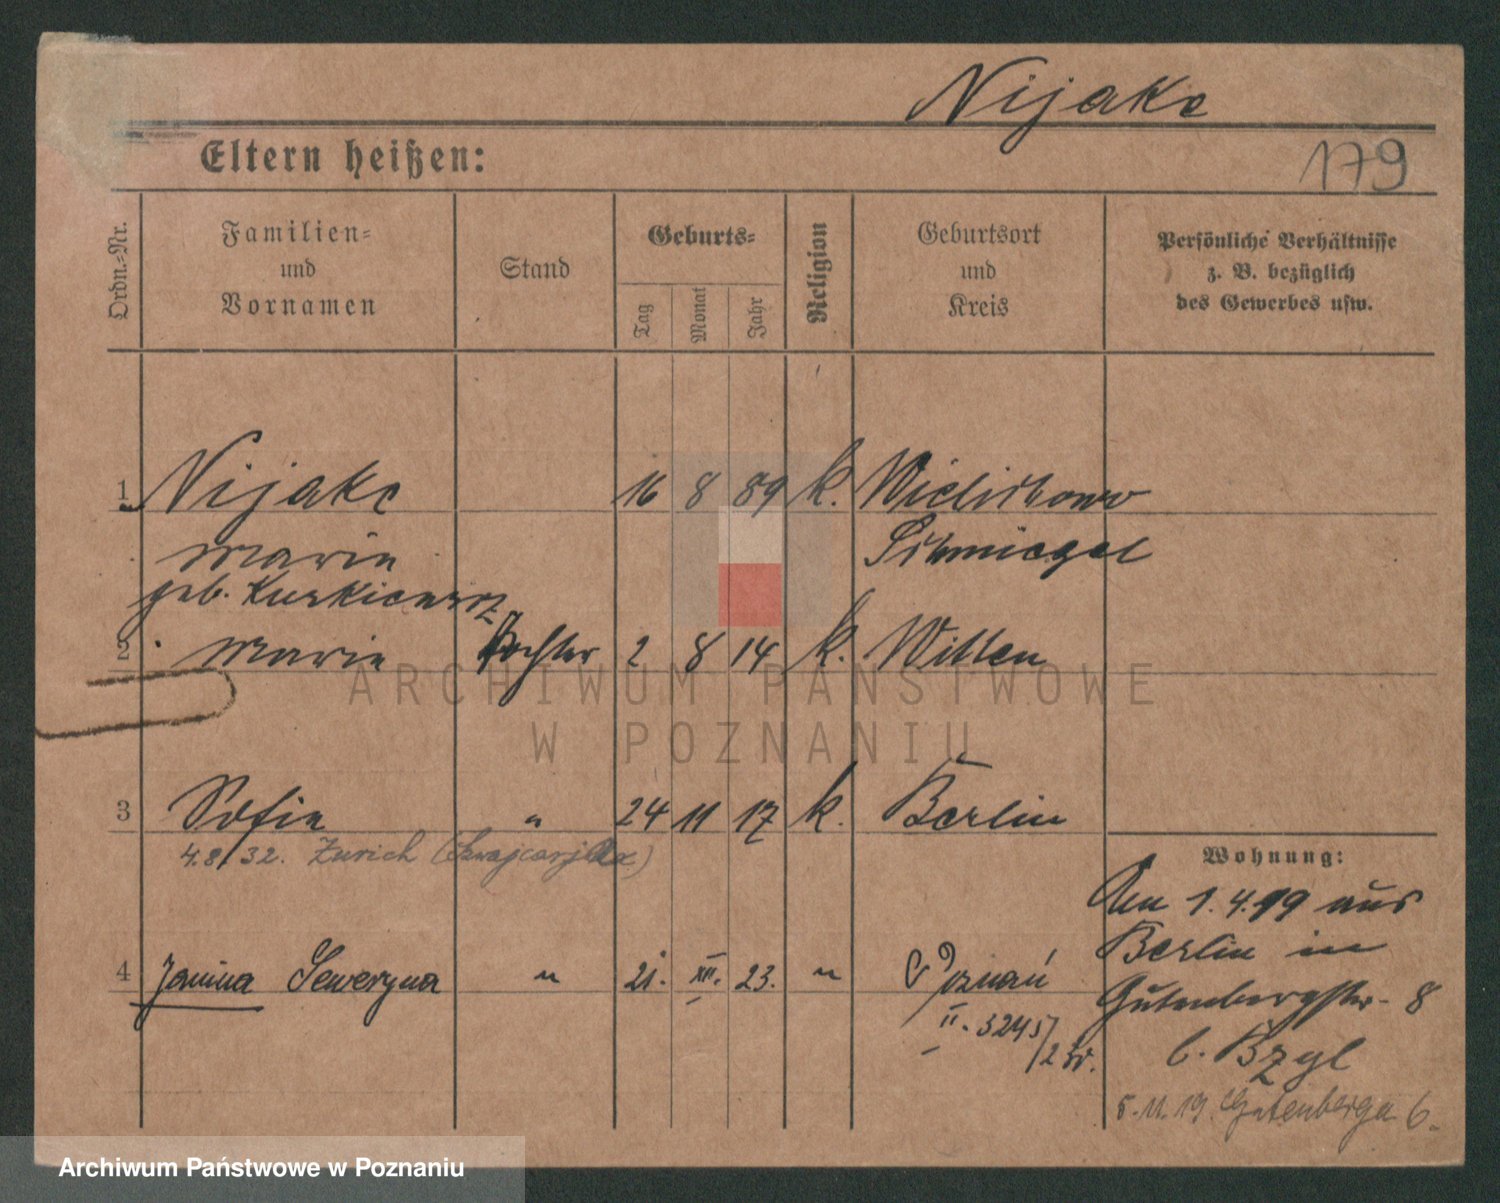 Nijake
179
Eltern heißen:
Ordn.-Nr.
Familien-
und
Vornamen
Stand
Geburts-
Tag
Monat
Jahr
Religion
Geburtsort
und
Kreis
Persönliche Verhältnisse
z. B. bezüglich
des Gewerbes usw.
1 Nijake 16 8 89 k. Wielichowo
Marie Schmiegel
geb. Kurkiewicz
2 Marie Tochter 2 8 14 k. Witten
3 Sofie " 24 11 17 k. Berlin
4.8/32. Zurich (Szwajcarja)
Wohnung:
Am 1.4.19 aus
Berlin in
Gutenbergstr. 8
b. Bzyl
5.11.19. Gutenberga 6.
4 Janina Seweryna " 21. XII. 23. " Poznań
II. 3245/
ARCHIWUM PAŃSTWOWE
W POZNANIU
Archiwum Państwowe w Poznaniu